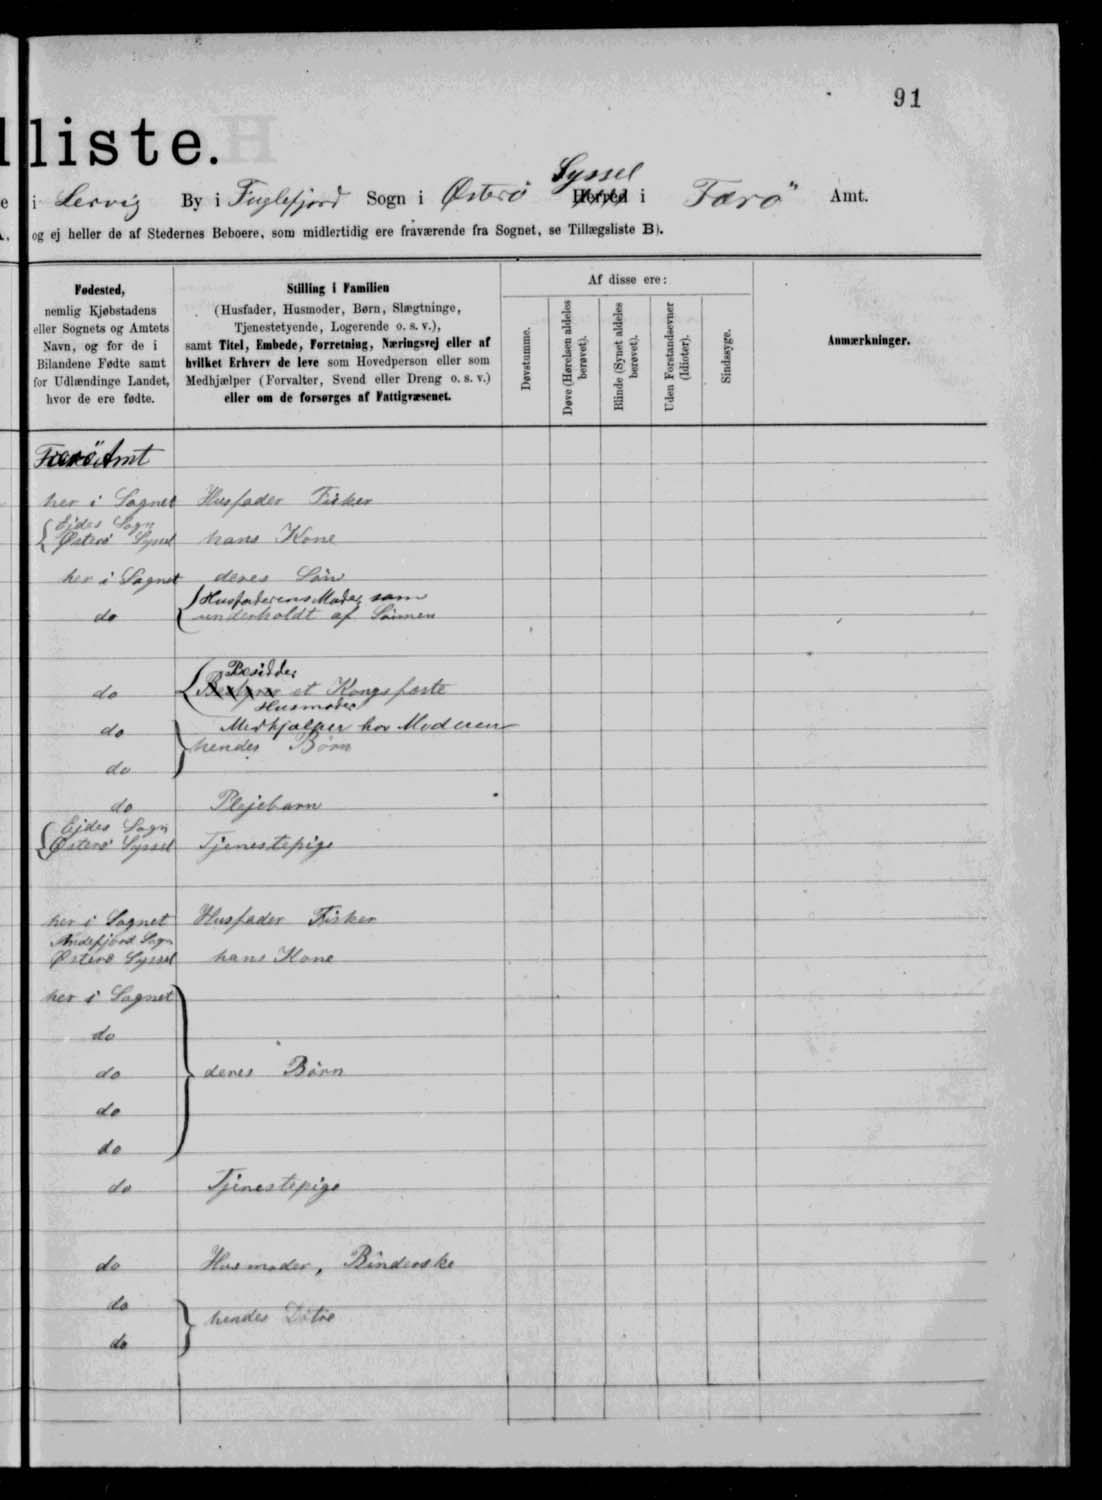 91
lliste.
e i Lervig By i Fuglefjord Sogn i Østerö Syssel Herred i Færö Amt.
og ej heller de af Stedernes Beboere, som midlertidig ere fraværende fra Sognet, se Tillægsliste B).
Fødested,
nemlig Kjøbstadens
eller Sognets og Amtets
Navn, og for de i
Bilandene Fødte samt
for Udlændinge Landet,
hvor de ere fødte.
Stilling i Familien
(Husfader, Husmoder, Børn, Slægtninge,
Tjenestetyende, Logerende o. s. v.),
samt Titel, Embede, Forretning, Næringsvej eller af
hvilket Erhverv de leve som Hovedperson eller som
Medhjælper (Forvalter, Svend eller Dreng o. s. v.)
eller om de forsørges af Fattigvæsenet.
Af disse ere:
Døvstumme.
Døve (Hørelsen aldeles
berøvet).
Blinde (Synet aldeles
berøvet).
Uden Forstandsevner
(Idioter).
Sindssyge.
Anmærkninger.
Færö Amt
her i Sognet Husfader Fisker
Ejdes Sogn
Østerö Syssel hans Kone
her i Sognet deres Sön
Husfaderens Moder som
do underholdt af Sönnen
Besidder
do et Kongsfæste
Husmoder
do Medhjælper hos Moderen
hendes Börn
do
do Plejebarn
Ejdes Sogn
Østerö Syssel Tjenestepige
her i Sognet Husfader Fisker
Andefjord Sogn
Østerö Syssel hans Kone
her i Sognet
do
do deres Börn
do
do
do Tjenestepige
do Husmoder, Binderske
do
hendes Dötre
do